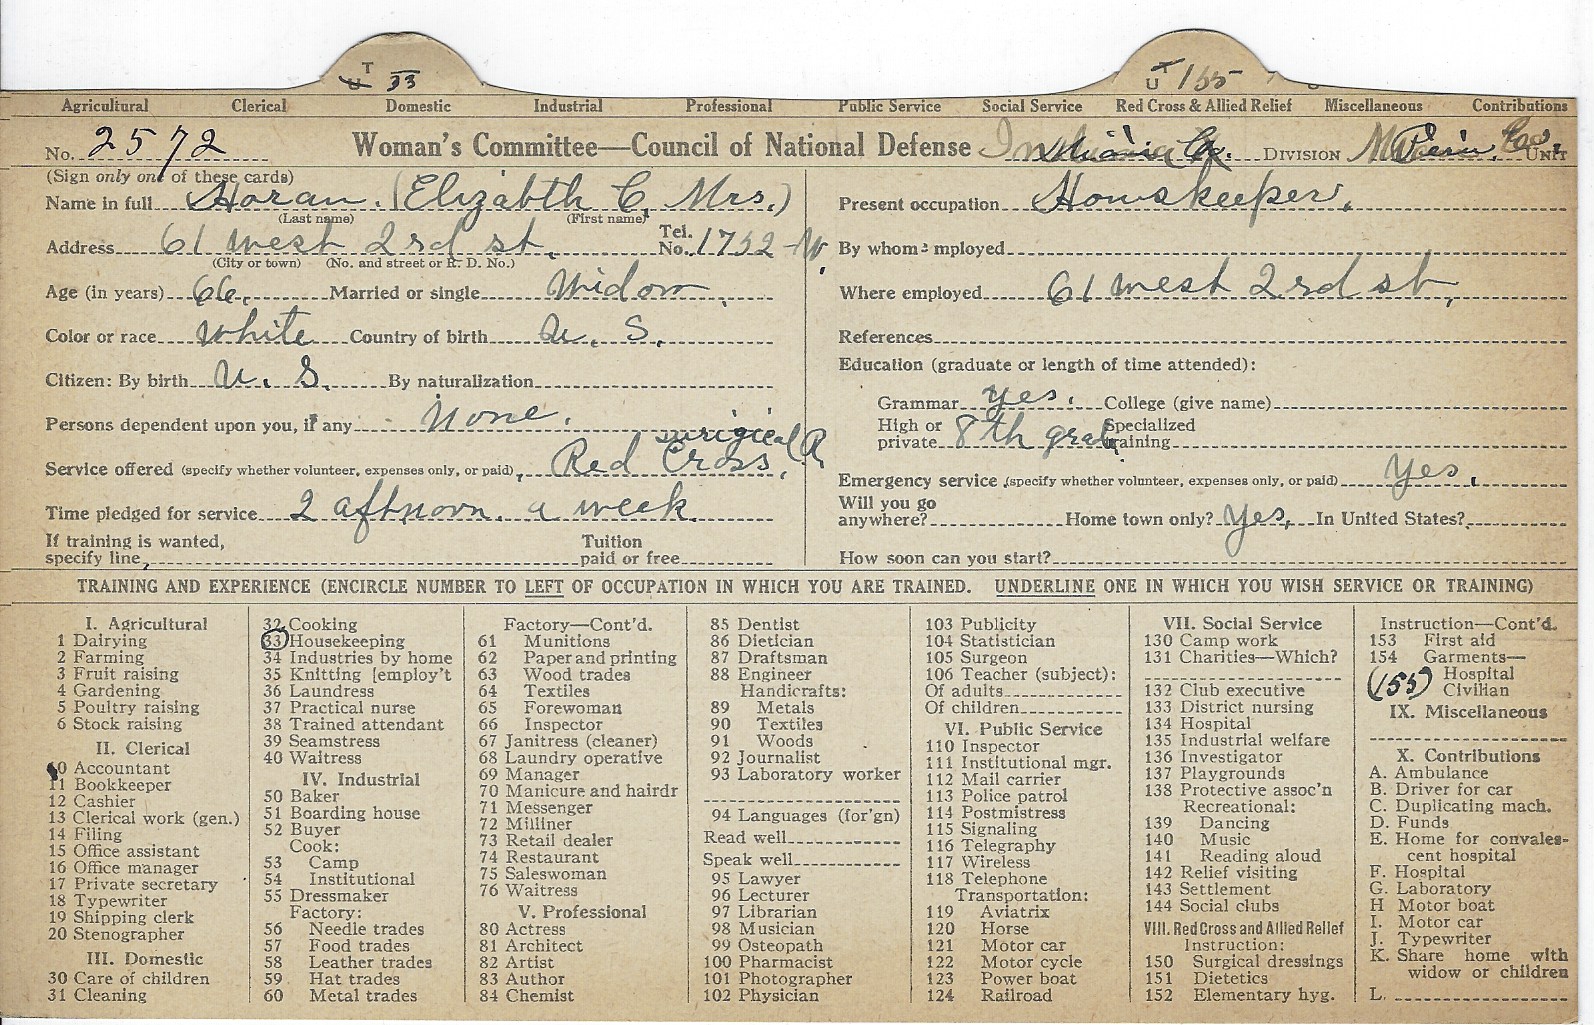 T
U 33
T
U 155
Agricultural Clerical Domestic Industrial Professional Public Service Social Service Red Cross & Allied Relief Miscellaneous Contributions
No. 2572 Woman's Committee—Council of National Defense Indiana DIVISION UNIT
(Sign only one of these cards)
Name in full Horan. (Elizabth C. Mrs.)
(Last name) (First name)
Address 61 west 2rd st. Tel. No. 1752-W.
(City or town) (No. and street or R. D. No.)
Age (in years) 66. Married or single Widow.
Color or race White Country of birth U. S.
Citizen: By birth U. S. By naturalization
Persons dependent upon you, if any None.
Service offered (specify whether volunteer, expenses only, or paid) Red Cross, surigical
Time pledged for service 2 aftnoon. a week.
If training is wanted, specify line Tuition paid or free
Present occupation Houskeeper.
By whom employed
Where employed 61 west 2rd st,
References
Education (graduate or length of time attended):
Grammar yes. College (give name)
High or private 8th grad Specialized training
Emergency service (specify whether volunteer, expenses only, or paid) Yes.
Will you go anywhere? Home town only? Yes, In United States?
How soon can you start?
TRAINING AND EXPERIENCE (ENCIRCLE NUMBER TO LEFT OF OCCUPATION IN WHICH YOU ARE TRAINED. UNDERLINE ONE IN WHICH YOU WISH SERVICE OR TRAINING)
I. Agricultural
1 Dairying
2 Farming
3 Fruit raising
4 Gardening
5 Poultry raising
6 Stock raising
II. Clerical
10 Accountant
11 Bookkeeper
12 Cashier
13 Clerical work (gen.)
14 Filing
15 Office assistant
16 Office manager
17 Private secretary
18 Typewriter
19 Shipping clerk
20 Stenographer
III. Domestic
30 Care of children
31 Cleaning
32 Cooking
33 Housekeeping
34 Industries by home
35 Knitting [employ't
36 Laundress
37 Practical nurse
38 Trained attendant
39 Seamstress
40 Waitress
IV. Industrial
50 Baker
51 Boarding house
52 Buyer
Cook:
53 Camp
54 Institutional
55 Dressmaker
Factory:
56 Needle trades
57 Food trades
58 Leather trades
59 Hat trades
60 Metal trades
Factory—Cont'd.
61 Munitions
62 Paper and printing
63 Wood trades
64 Textiles
65 Forewoman
66 Inspector
67 Janitress (cleaner)
68 Laundry operative
69 Manager
70 Manicure and hairdr
71 Messenger
72 Milliner
73 Retail dealer
74 Restaurant
75 Saleswoman
76 Waitress
V. Professional
80 Actress
81 Architect
82 Artist
83 Author
84 Chemist
85 Dentist
86 Dietician
87 Draftsman
88 Engineer
Handicrafts:
89 Metals
90 Textiles
91 Woods
92 Journalist
93 Laboratory worker
94 Languages (for'gn)
Read well
Speak well
95 Lawyer
96 Lecturer
97 Librarian
98 Musician
99 Osteopath
100 Pharmacist
101 Photographer
102 Physician
103 Publicity
104 Statistician
105 Surgeon
106 Teacher (subject):
Of adults
Of children
VI. Public Service
110 Inspector
111 Institutional mgr.
112 Mail carrier
113 Police patrol
114 Postmistress
115 Signaling
116 Telegraphy
117 Wireless
118 Telephone
Transportation:
119 Aviatrix
120 Horse
121 Motor car
122 Motor cycle
123 Power boat
124 Railroad
VII. Social Service
130 Camp work
131 Charities—Which?
132 Club executive
133 District nursing
134 Hospital
135 Industrial welfare
136 Investigator
137 Playgrounds
138 Protective assoc'n
Recreational:
139 Dancing
140 Music
141 Reading aloud
142 Relief visiting
143 Settlement
144 Social clubs
VIII. Red Cross and Allied Relief
Instruction:
150 Surgical dressings
151 Dietetics
152 Elementary hyg.
Instruction—Cont'd.
153 First aid
154 Garments—
Hospital
(155) Civilian
IX. Miscellaneous
X. Contributions
A. Ambulance
B. Driver for car
C. Duplicating mach.
D. Funds
E. Home for convales-
cent hospital
F. Hospital
G. Laboratory
H Motor boat
I. Motor car
J. Typewriter
K. Share home with
widow or children
L.